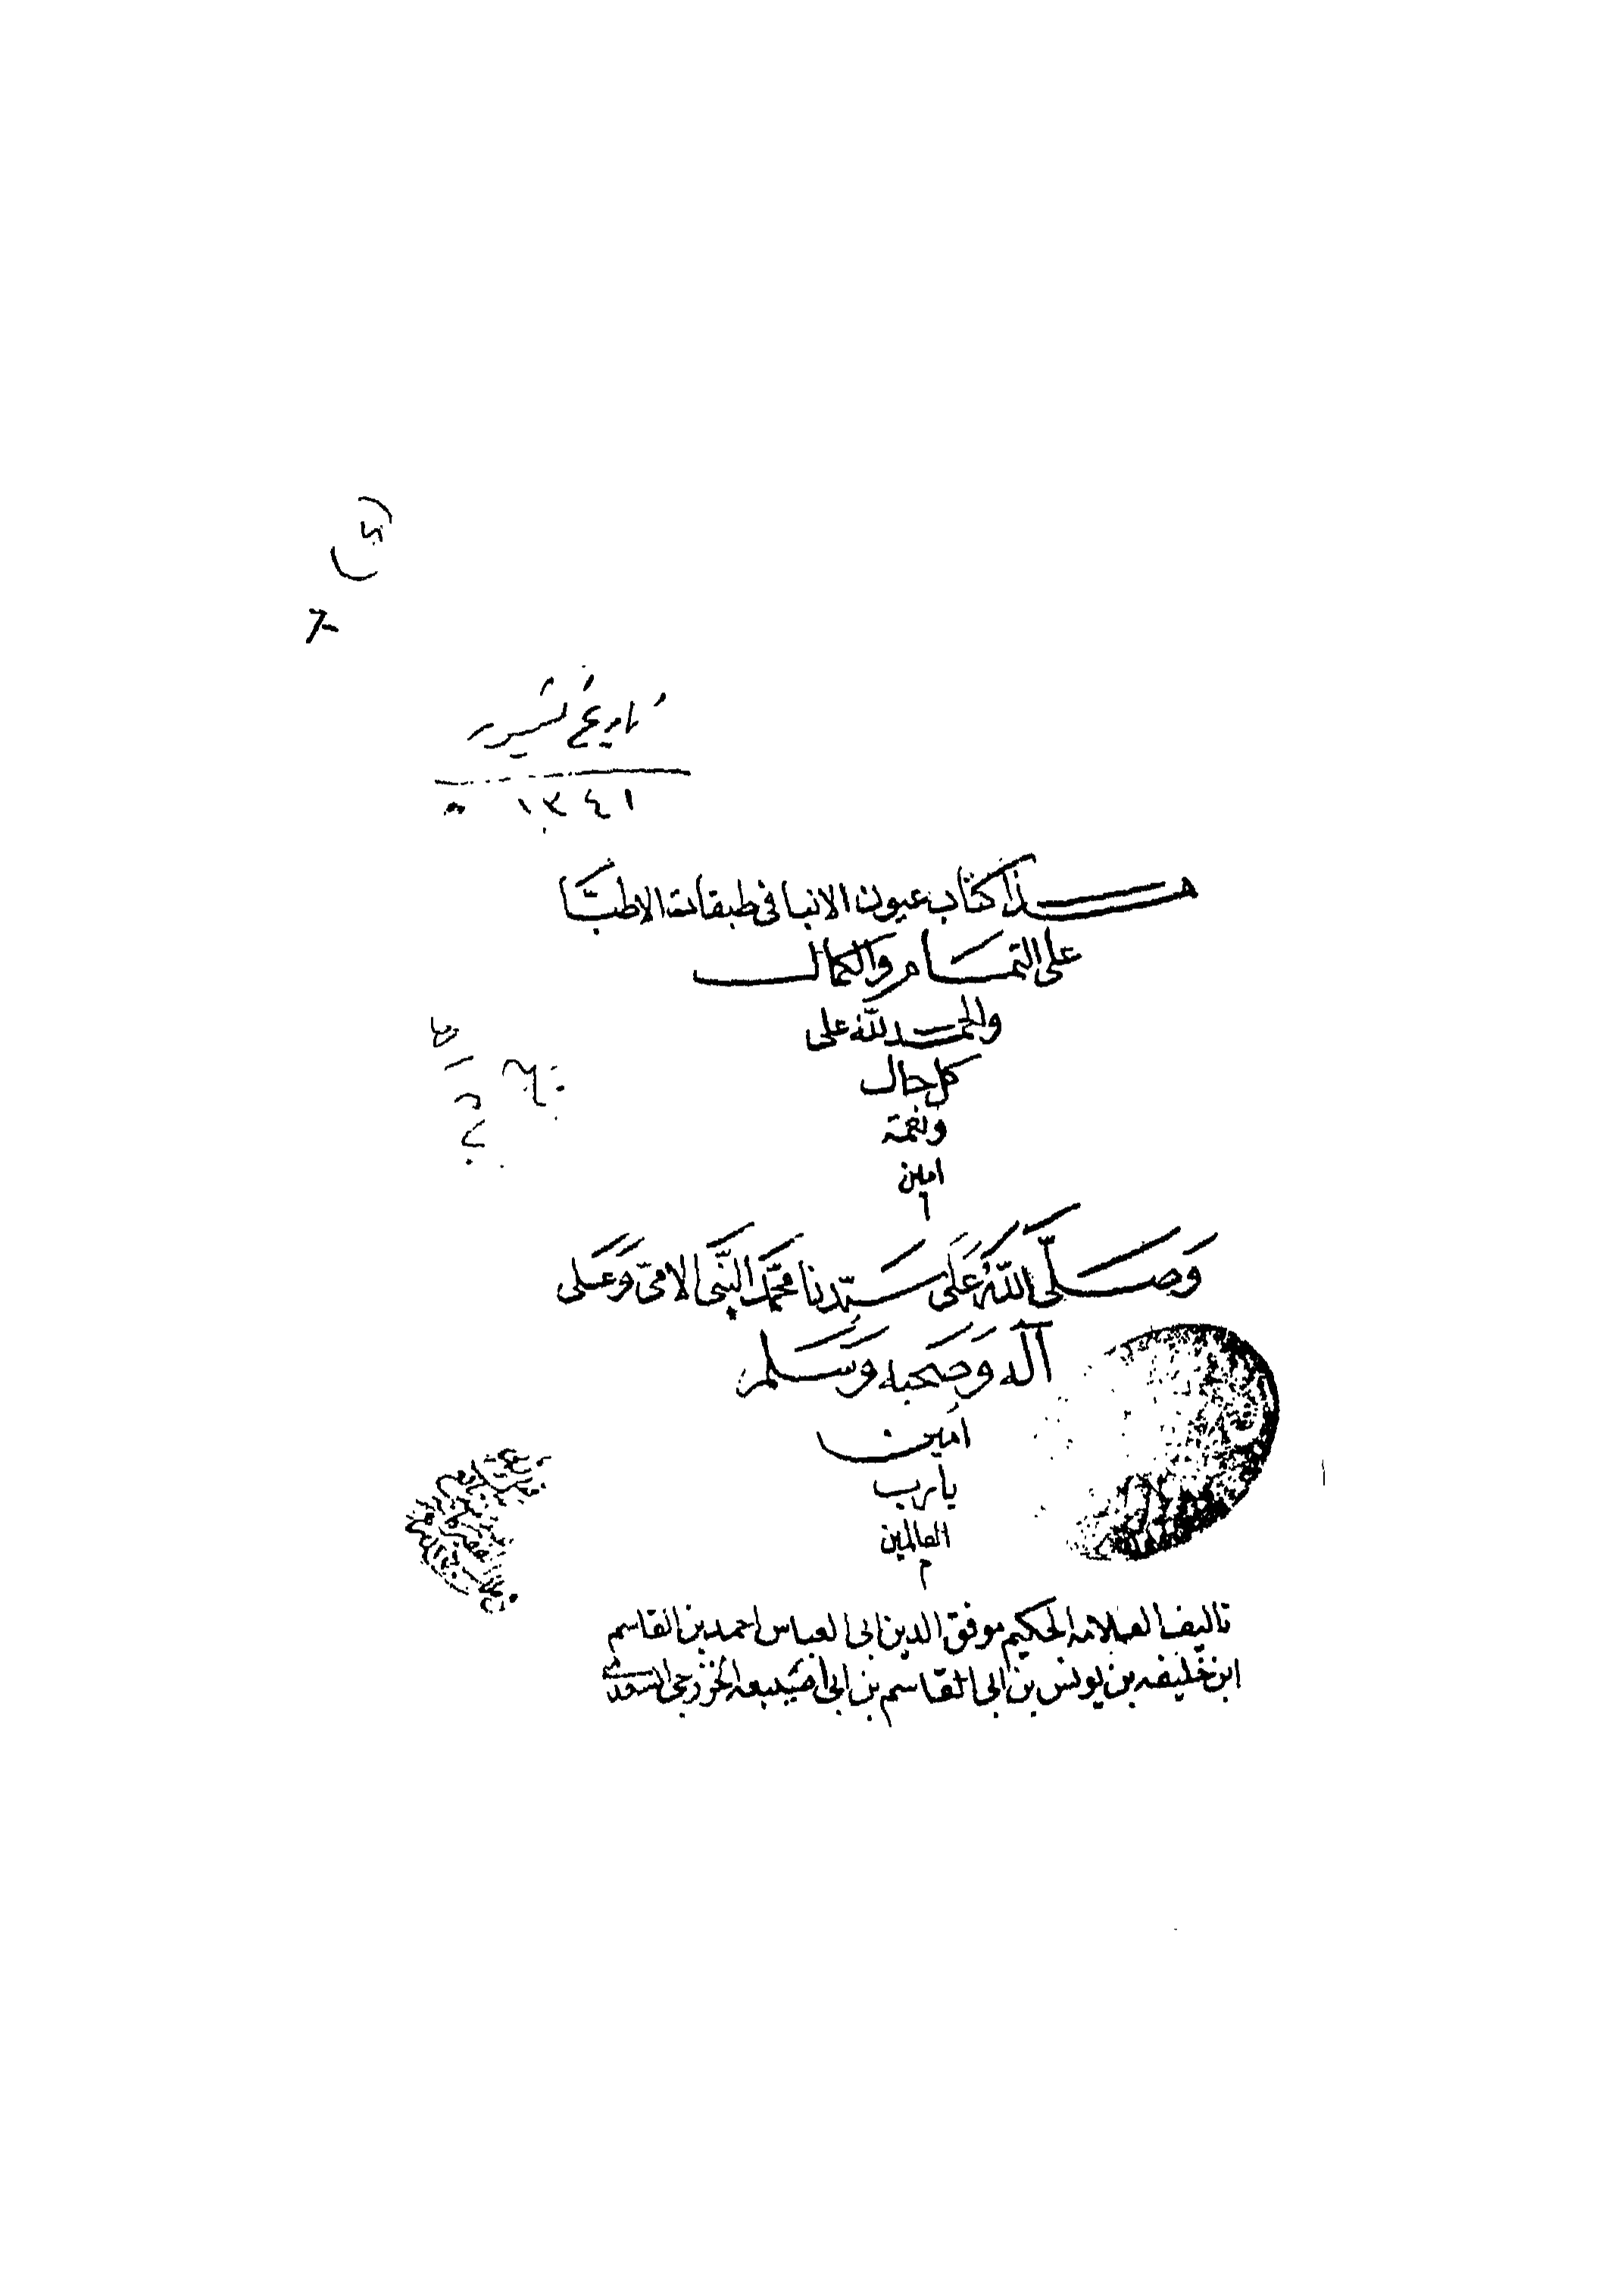 تاريخ تيمور
١٣٤١
هذا كتاب عيون الانبا فى طبقات الاطبَّا
على التمام والكمال
والحمد للّه على
كل حال
ونعمة
امين
وَصَلَّى اللّهُ عَلَى سَيّدِنا محمَّد النَّبَى الامىّ وَعَلى
آله وَصَحبه وَسَلم
امين
يارب
العالمين
م
تاليف العلامه الحكيم موفق الدين ابى العباس احمد بن القاسم
ابن خليفه بن يونس بن ابى القاسم بن ابى اصَيبعه الخزرجى السعدى